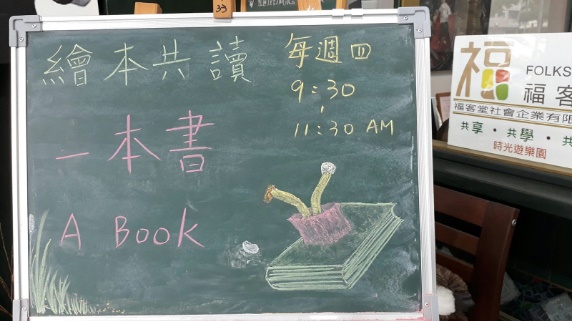 繪本共讀
每週四
9:30
11:30 AM
一本書
A Book
福
FOLKS
福客
福客堂社會企業有限
共享・共學・共
時光遊樂園